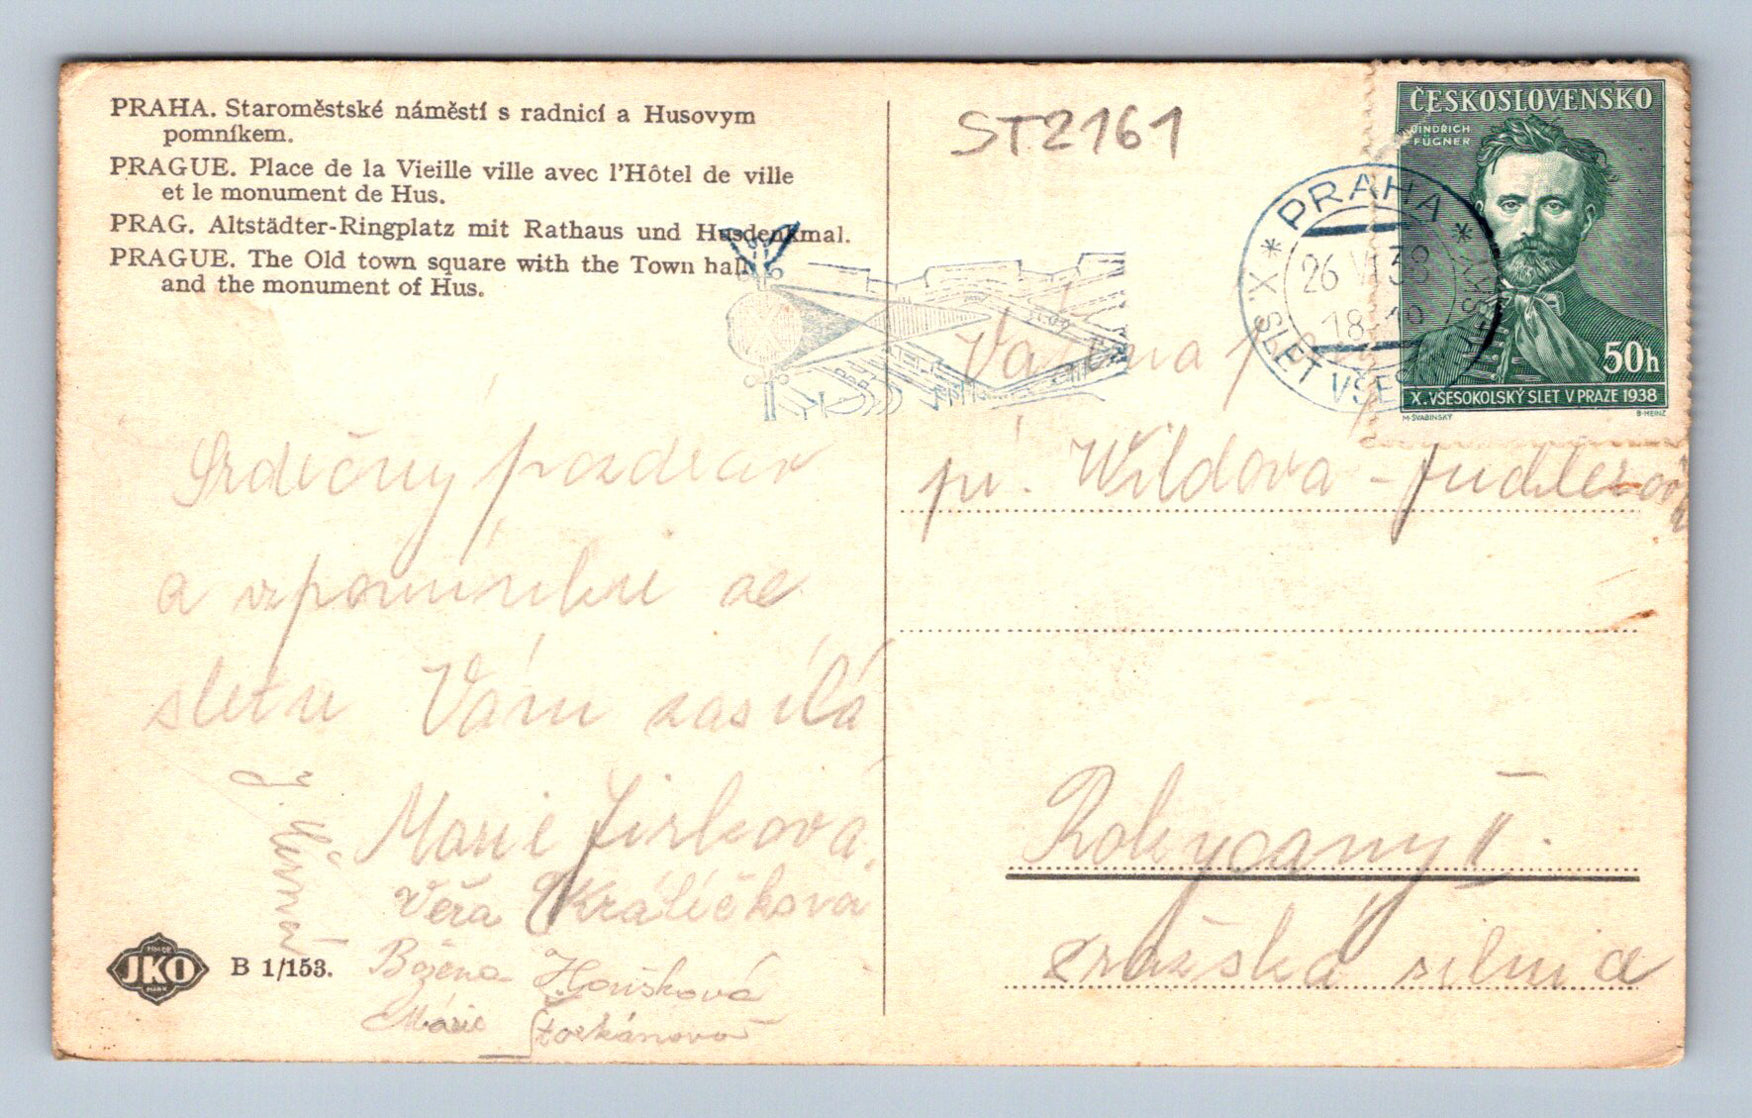 PRAHA. Staroměstské náměstí s radnicí a Husovym
pomníkem.
PRAGUE. Place de la Vieille ville avec l'Hôtel de ville
et le monument de Hus.
PRAG. Altstädter-Ringplatz mit Rathaus und Husdenkmal.
PRAGUE. The Old town square with the Town hall
and the monument of Hus.
ST2161
ČESKOSLOVENSKO
JINDRICH
FÜGNER
50h
X. VŠESOKOLSKÝ SLET V PRAZE 1938
M·ŠVABINSKÝ
B·HEINZ
* PRAHA *
26 VI 38
18
X. SLET VŠESOKOLSKÝ
Srdečný pozdrav
a vzpomínku ze
sletu Vám zasílá
Marie Jirková,
Věra Králíčková
Božena Houšková
Marie
Vážená
pí. Wildova -
Rokycany II.
Pražská silnice
JKO
B 1/153.